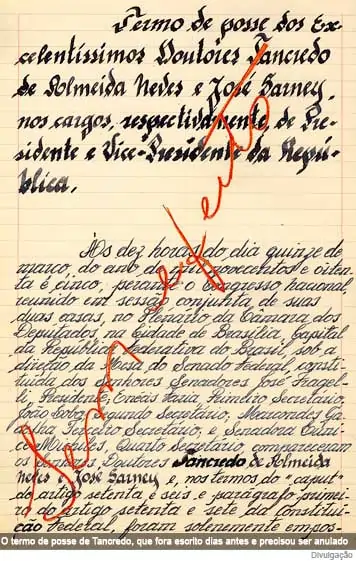 Termo de posse dos Ex-
celentíssimos Doutores Tancredo
de Almeida Neves e José Sarney,
nos cargos, respectivamente, de Pre-
sidente e Vice-Presidente da Repú-
blica.
Às dez horas do dia quinze de
março, do ano de mil novecentos e oiten-
ta e cinco, perante o Congresso Nacional,
reunido em sessão conjunta de suas
duas casas, no Plenário da Câmara dos
Deputados, na Cidade de Brasília, Capital
da República Federativa do Brasil, sob a
direção da Mesa do Senado Federal, consti-
tuída dos Senhores Senadores José Fragel-
li, Presidente, Enéas Faria, Primeiro Secretário,
João Lobo, Segundo Secretário, Marcondes Ga-
delha, Terceiro Secretário, e Senadora Euni-
ce Michiles, Quarto Secretário, compareceram
os Senhores Doutores Tancredo de Almeida
Neves e José Sarney e, nos termos do "caput"
do artigo setenta e seis e parágrafo primei-
ro do artigo setenta e sete da Constitui-
ção Federal, foram solenemente empos-
Sem efeito
O termo de posse de Tancredo, que fora escrito dias antes e precisou ser anulado
Divulgação